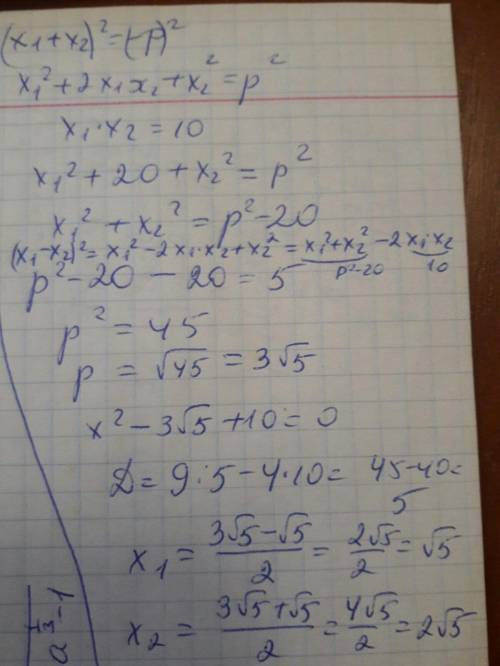 (x₁+x₂)²=(-p)²
x₁²+2x₁x₂+x₂²=p²
x₁·x₂=10
x₁²+20+x₂²=p²
x₁²+x₂²=p²-20
(x₁-x₂)²=x₁²-2x₁·x₂+x₂²=x₁²+x₂²-2x₁·x₂
p²-20 10
p²-20-20=5
p²=45
p=√45=3√5
x²-3√5+10=0
D=9·5-4·10=45-40=
5
x₁=(3√5-√5)/2=2√5/2=√5
x₂=(3√5+√5)/2=4√5/2=2√5